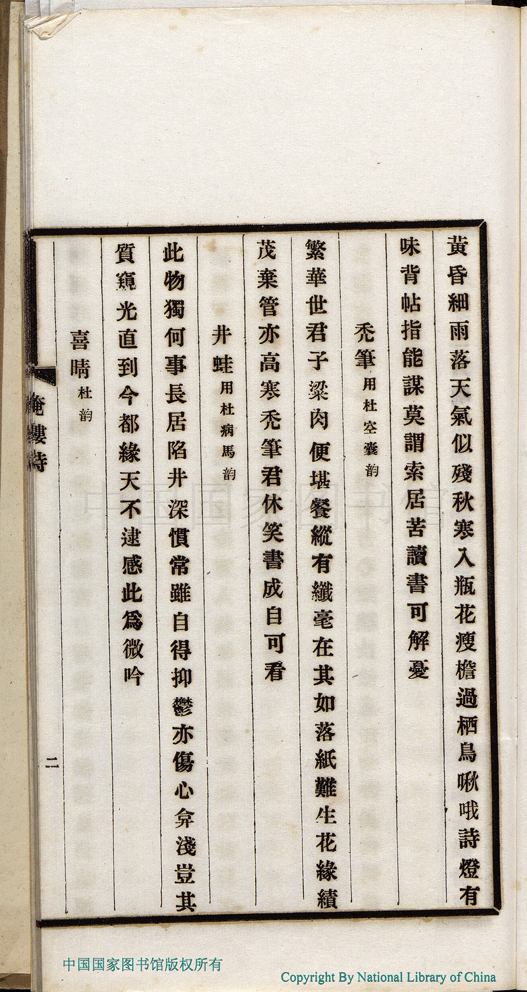 黃昏細雨落天氣似殘秋寒入瓶花瘦檐過栖鳥啾哦詩燈有
味背帖指能謀莫謂索居苦讀書可解憂
禿筆用杜空囊韵
繁華世君子粱肉便堪餐縱有纖毫在其如落紙難生花緣績
茂棄管亦高寒禿筆君休笑書成自可看
井蛙用杜病馬韵
此物獨何事長居陷井深慣常雖自得抑鬱亦傷心弇淺豈其
質窺光直到今都緣天不逮感此爲微吟
喜晴杜韵
詩
二
中国国家图书馆
中国国家图书馆版权所有
Copyright By National Library of China